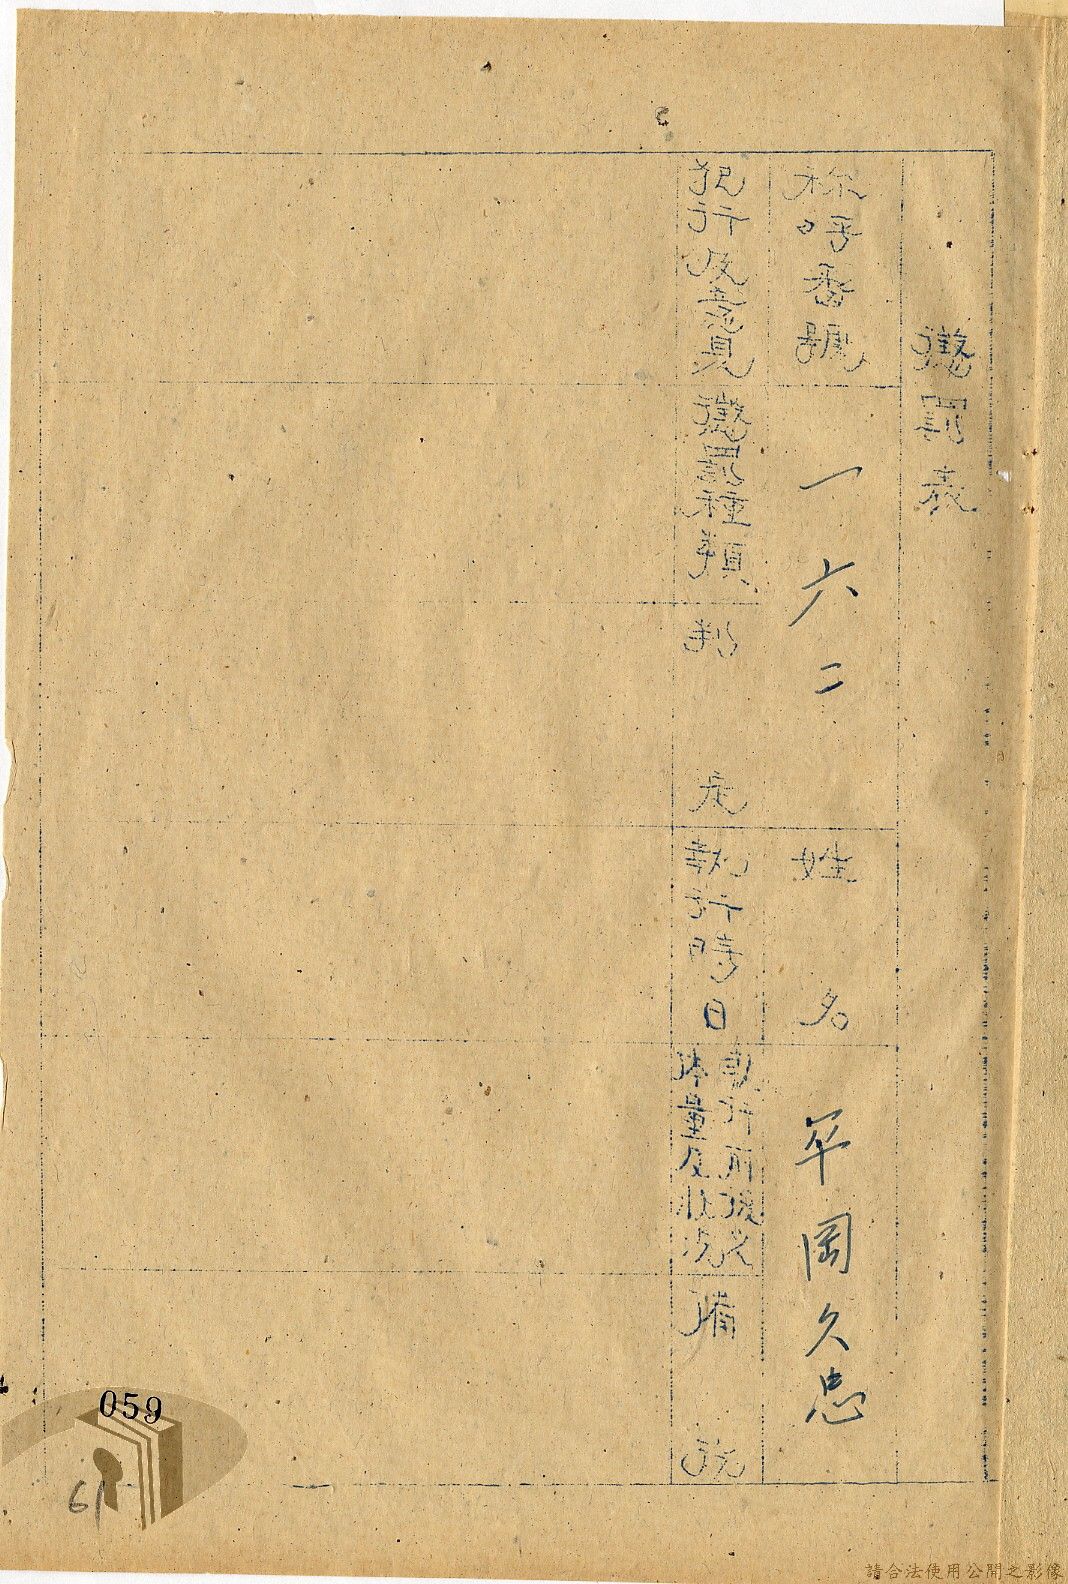 懲罰表
称呼番號
一六二
姓名
平岡久忠
犯行及意見
懲罰種類
判定
執行時日
執行前後之
体量及狀況
備
059
61
請合法使用公開之影像